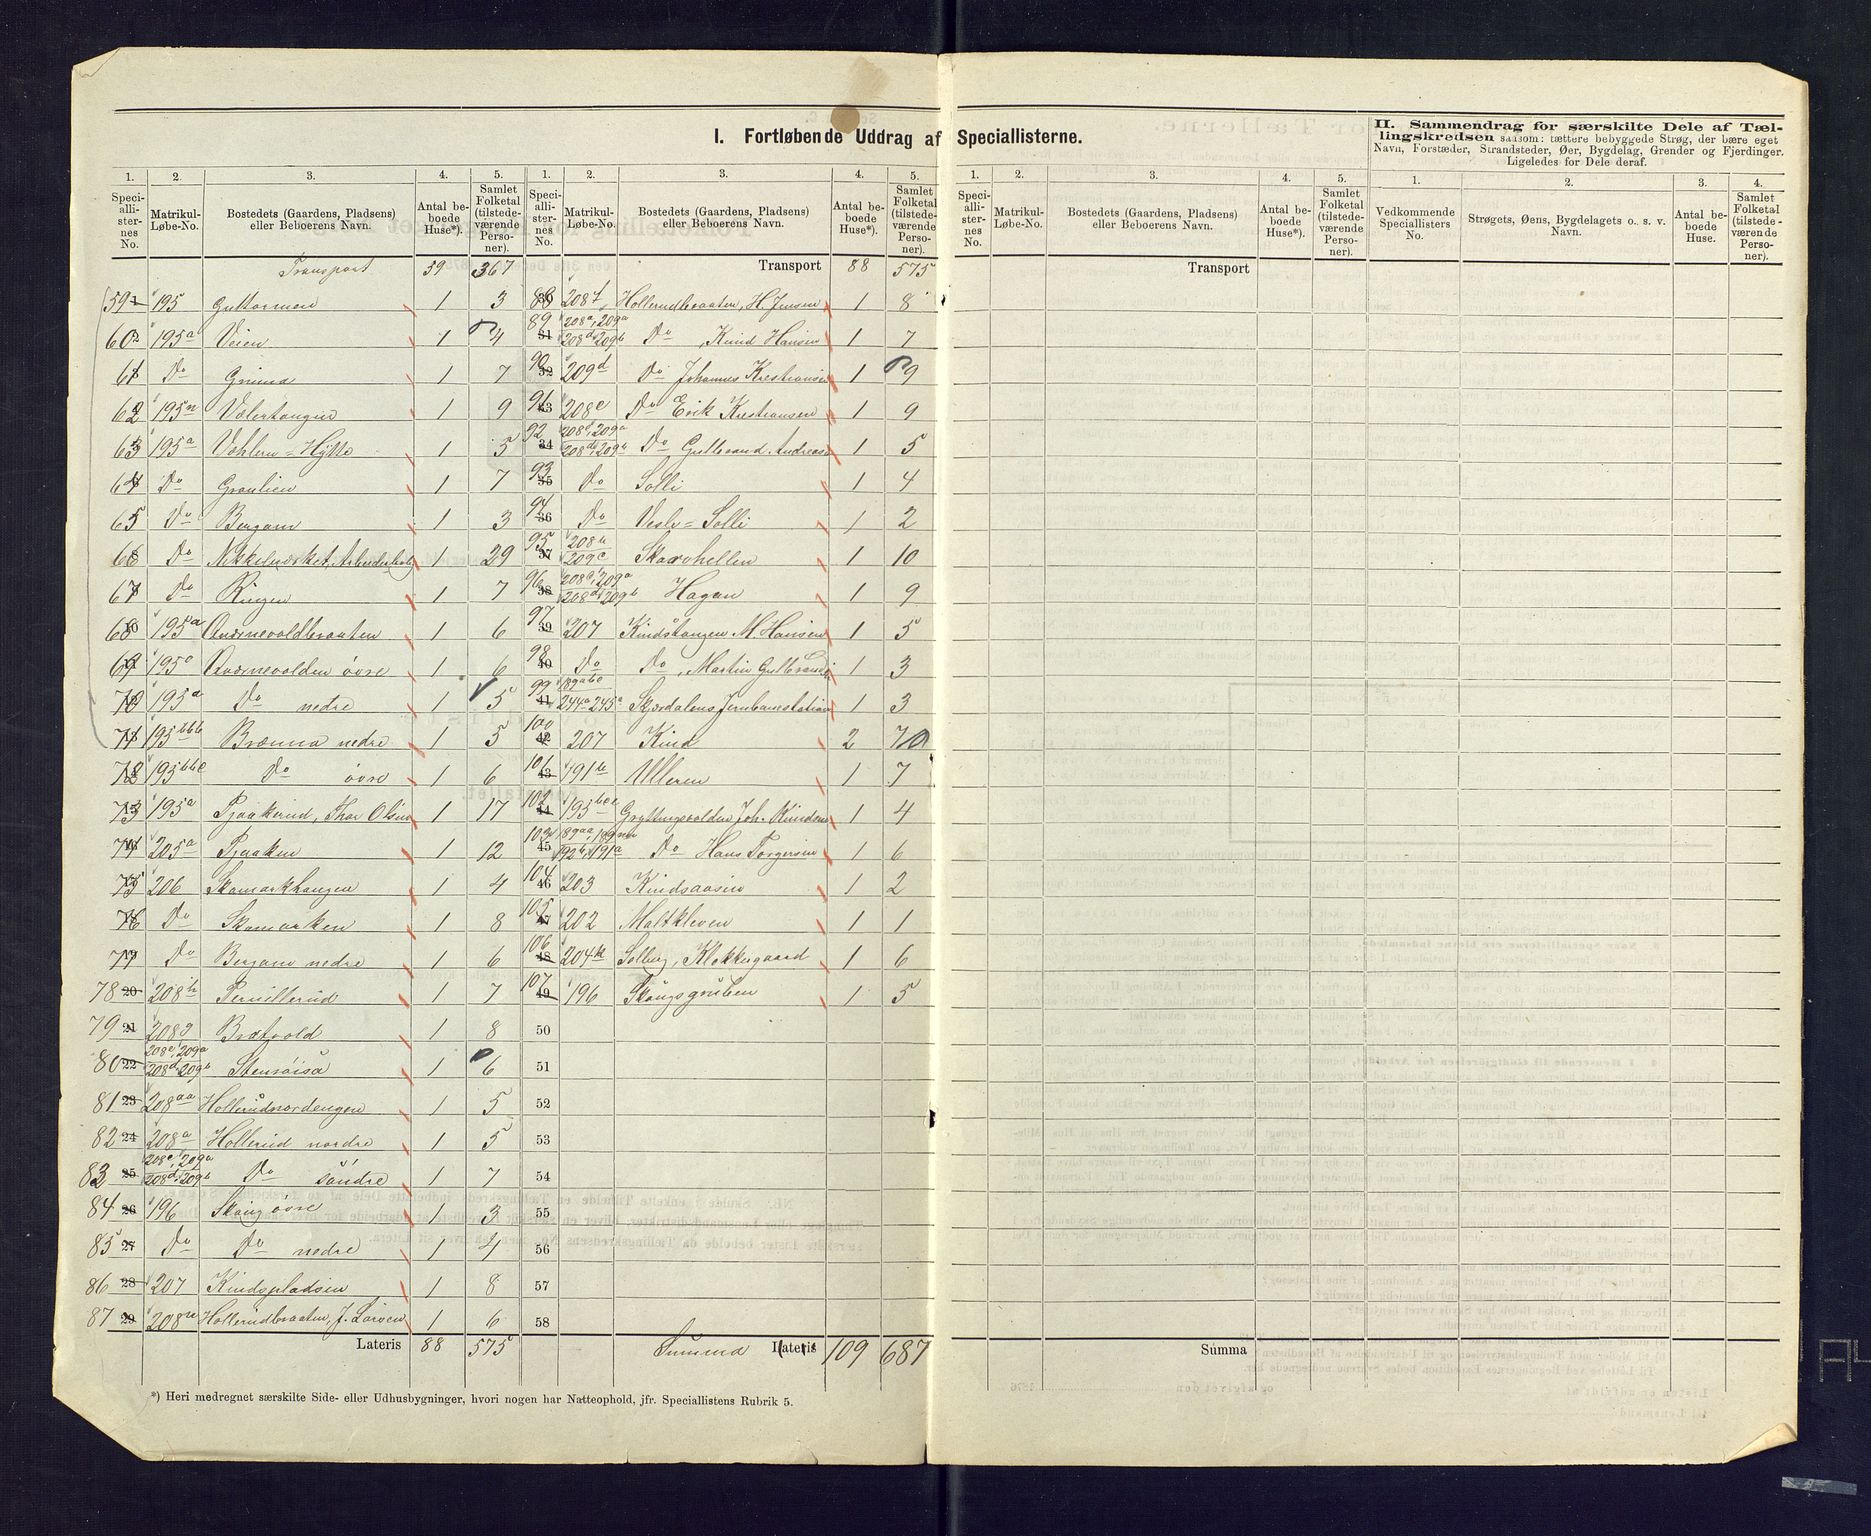 I. Fortløbende Uddrag af Speciallisterne.
II. Sammendrag for særskilte Dele af Tællingskredsen saasom: tættere bebyggede Strøg, der bære eget Navn, Forstæder, Strandsteder, Øer, Bygdelag, Grender og Fjerdinger. Ligeledes for Dele deraf.
1. 2. 3. 4. 5. 1. 2. 3. 4. 5.
Speciallisternes No. Matrikul-Løbe-No. Bostedets (Gaardens, Pladsens) eller Beboerens Navn. Antal beboede Huse*). Samlet Folketal (tilstedeværende Personer).
Transport 59 367
59 195 Guttormen 1 3
60 195a Veien 1 4
61 Do Grinna 1 7
62 195n Vælertangen 1 9
63 195a Væhlern-Hytte 1 5
64 Do Granlien 1 7
65 Do Bergam 1 3
66 Do Nikkelværket, Arbeiderbolig 1 29
67 Do Ringen 1 7
68 195a Qværnevoldbraaten 1 6
69 195a Qværnevolden øvre 1 6
70 195a Do nedre 1 5
71 195bbb Brænna nedre 1 5
72 195bbc Do øvre 1 6
73 195a Tjaakerud, Thor Olsen 1 17
74 205a Tjaaken 1 12
75 206 Skamarkhaugen 1 4
76 Do Skamarken 1 8
77 Do Bergam nedre 1 6
78 208h Pernillerud 1 7
79 208g Brætvold 1 8
80 208c, 209a 208d, 209b Stensrøisa 1 6
81 208aa Hollerudnordengen 1 5
82 208a Hollerud nordre 1 5
83 208c, 209a 208d, 209b Do søndre 1 7
84 196 Skoug øvre 1 3
85 Do Do nedre 1 4
86 207 Kindspladsen 1 8
87 208n Hollerudbraaten, J. Larsen 1 6
Lateris 88 575
Transport 88 575
88 208f Hollerudbraaten, H. Jensen 1 8
89 208a, 209a 208d, 209b Do, Knud Hansen 1 7
90 209d Do Johannes Kristiansen 1 9
91 208e Do Erik Kristiansen 1 9
92 208c, 209a 208d, 209b Do Gulbrand Andreas 1 5
93 Do Solli 1 4
94 Do Vesle-Solli 1 2
95 208b 209c Skarvhellen 1 10
96 208c, 209a 208d, 209b Hagan 1 9
97 207 Kindstangen M. Hansen 1 5
98 Do Do, Martin Gulbrands 1 3
99 189abc 244a, 245a Skjærdalens Jernbanestation 1 3
100 207 Kind 2 70
101 191b Ulleren 1 7
102 195bcc Gryttingsvolden Joh. Knudsen 1 4
103 189aa, 192b, 191a Do Hans Torgersen 1 6
104 203 Kindsaasen 1 2
105 202 Maltkleven 1 1
106 204b Solberg, Klokkergaard 1 6
107 196 Skougsgruben 1 5
50
51
52
53
54
55
56
57
58
Summa Lateris 109 687
*) Heri medregnet særskilte Side- eller Udhusbygninger, hvori nogen har Natteophold, jfr. Speciallistens Rubrik 5.
1. 2. 3. 4. 5.
Speciallisternes No. Matrikul-Løbe-No. Bostedets (Gaardens, Pladsens) eller Beboerens Navn. Antal beboede Huse*). Samlet Folketal (tilstedeværende Personer).
Transport
Summa
1. 2. 3. 4.
Vedkommende Speciallisters No. Strøgets, Øens, Bygdelagets o. s. v. Navn. Antal beboede Huse. Samlet Folketal (tilstedeværende Personer).